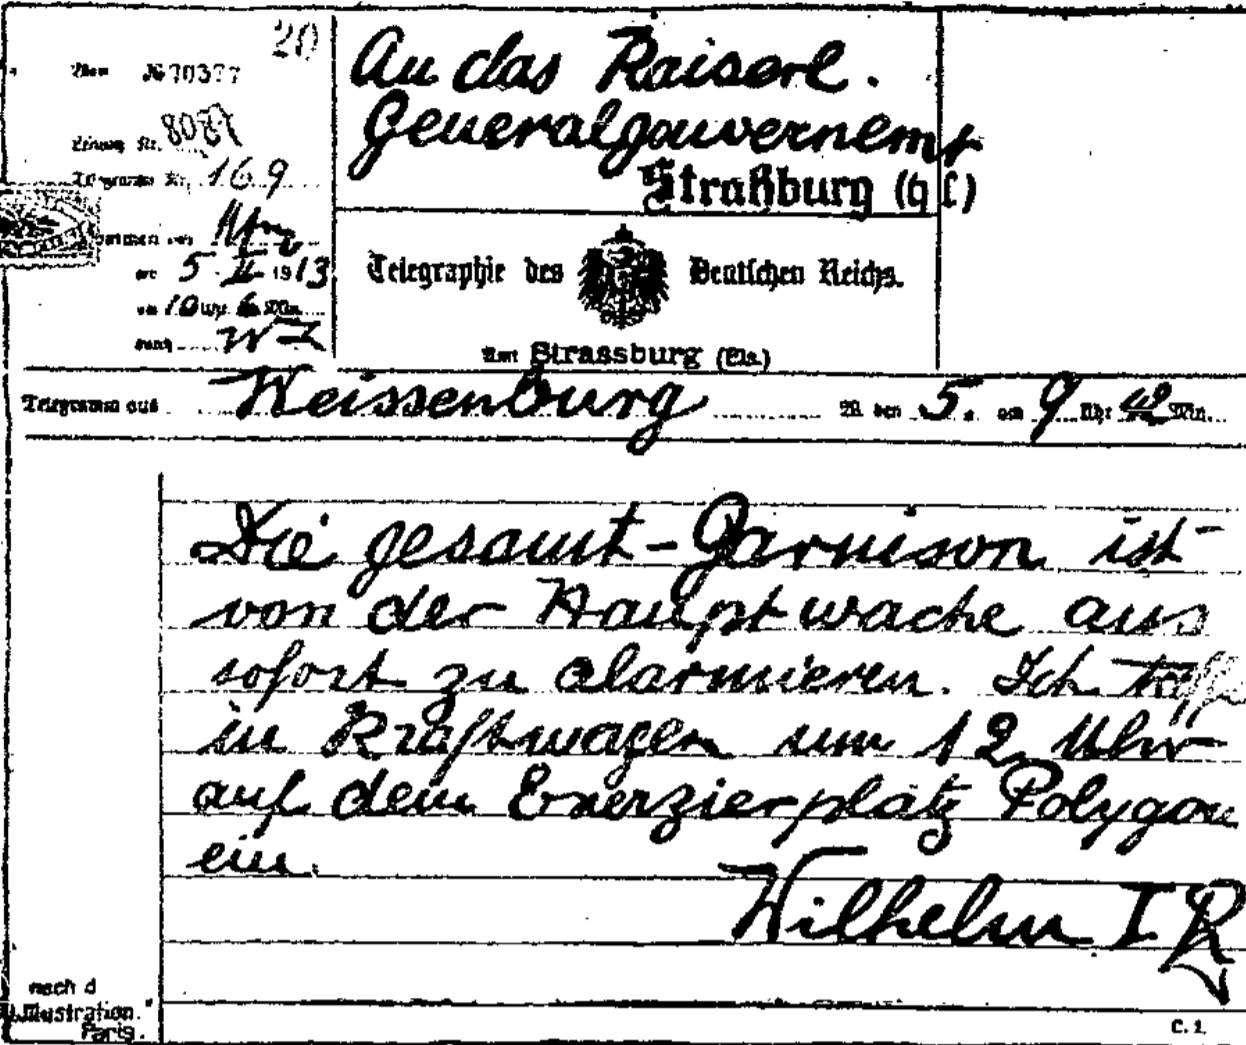 20
№ 70377
8087
169
5. II 1913
10 Uhr 6 Min.
An das Kaiserl.
Generalgouvernemt
Straßburg
Telegraphie des Deutschen Reichs.
Amt Strassburg (Els.)
Telegramm aus Weissenburg den 5. um 9 Uhr Min.
Die gesamt-Garnison ist
von der Hauptwache aus
sofort zu alarmieren. Ich treffe
in Kraftwagen um 12 Uhr
auf dem Exerzierplatz Polygon
ein.
Wilhelm I R
nach d
Illustration.
Paris.
C. 1